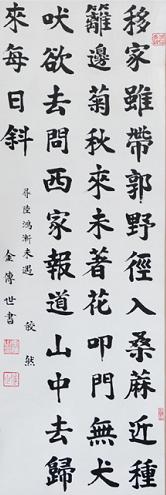 移家雖帶郭野徑入桑蔴近種
籬邊菊秋來未著花叩門無犬
吠欲去問西家報道山中去歸
來每日斜
尋陸鴻漸未遇 皎然
金傳世書